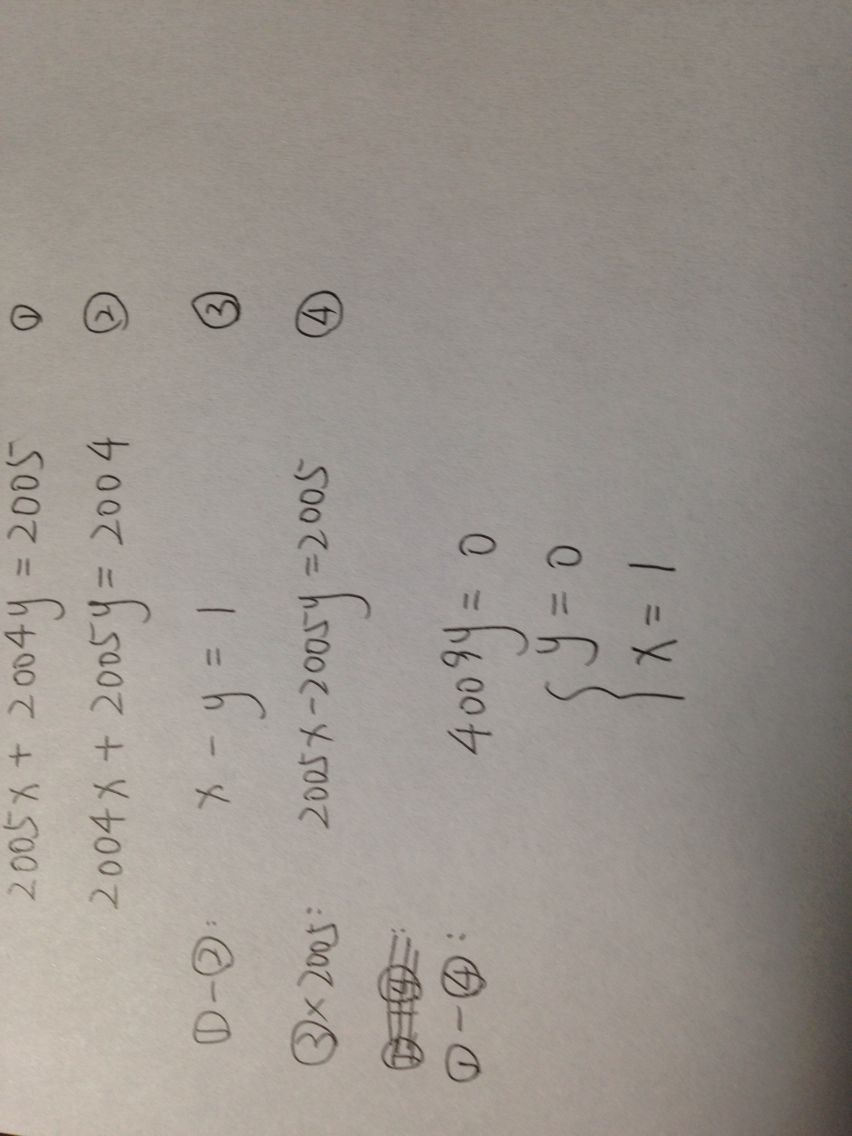 2005x + 2004y = 2005 ①
2004x + 2005y = 2004 ②
①-②: x - y = 1 ③
③×2005: 2005x-2005y=2005 ④
①-④: 4009y = 0
{ y = 0
x = 1